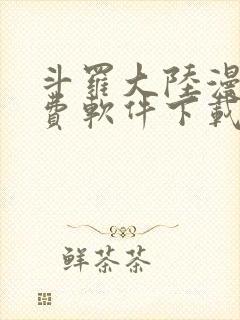 斗羅大陸漫
費軟件下載
鮮茶茶